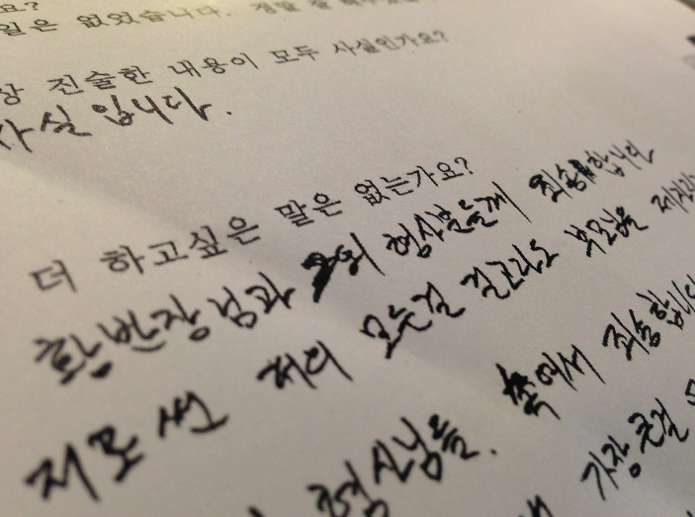 요?
일은 없었습니다. 정말 잘
상 진술한 내용이 모두 사실인가요?
사실 입니다.
더 하고싶은 말은 없는가요?
황반장님과 그외 형사분들께 죄송합니다
저로썬 저의 모든걸 걸고라도 부모님을
형사님들. 속여서 죄송합니다
가장 큰걸